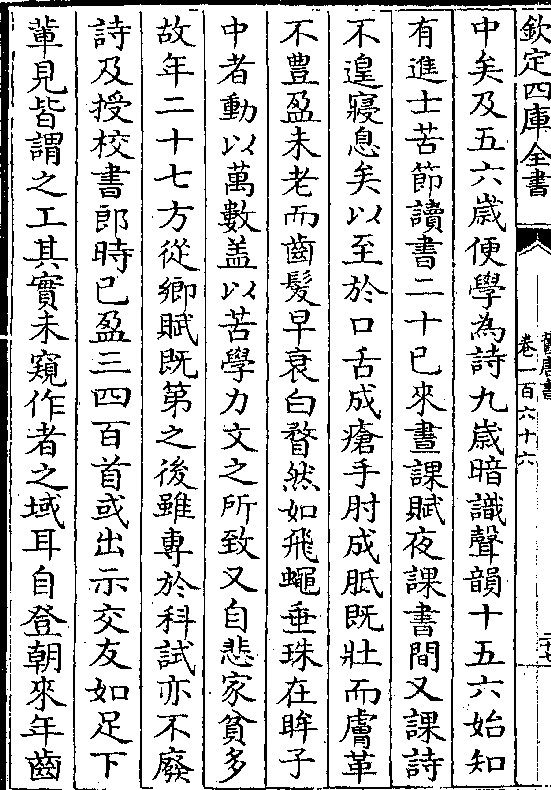 欽定四庫全書
舊唐書
卷一百六十六
中矣及五六歲便學為詩九歲暗識聲韻十五六始知
有進士苦節讀書二十已來晝課賦夜課書間又課詩
不遑寢息矣以至於口舌成瘡手肘成胝既壯而膚革
不豊盈未老而齒髮早衰白瞀然如飛蠅垂珠在眸子
中者動以萬數盖以苦學力文之所致又自悲家貧多
故年二十七方從鄉賦既第之後雖專於科試亦不廢
詩及授校書郎時已盈三四百首或出示交友如足下
軰見皆謂之工其實未窺作者之域耳自登朝來年齒